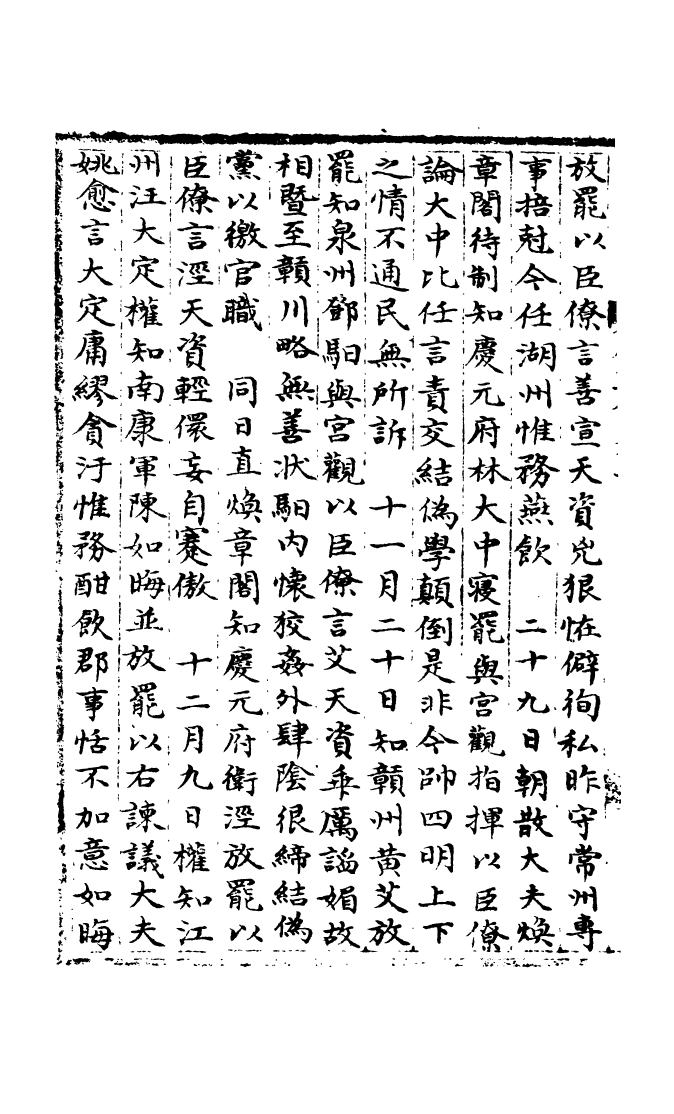 放罷以臣僚言善宣天資兇狠怪僻徇私昨守常州專
事掊尅今任湖州惟務燕飲　二十九日朝散大夫煥
章閣待制知慶元府林大中寝罷與宮觀指揮以臣僚
論大中比任言責交結偽學顛倒是非今帥四明上下
之情不通民無所訴　十一月二十日知贛州黄艾放
罷知泉州鄧馹與宮觀以臣僚言艾天資乖厲謟媚故
相暨至贛川略無善状馹内懐狡姦外肆陰很締結偽
黨以徼官職　同日直煥章閣知慶元府衛涇放罷以
臣僚言涇天資輕儇妄自蹇傲　十二月九日權知江
州汪大定權知南康軍陳如晦並放罷以右諫議大夫
姚愈言大定庸繆貪汙惟務酣飲郡事恬不加意如晦